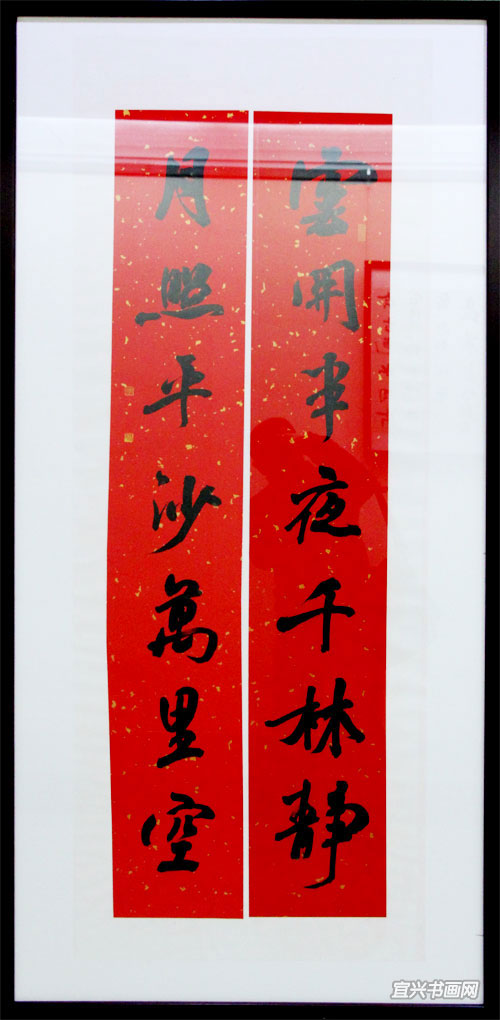 雲開半夜千林静
月照平沙萬里空
宜兴书画网